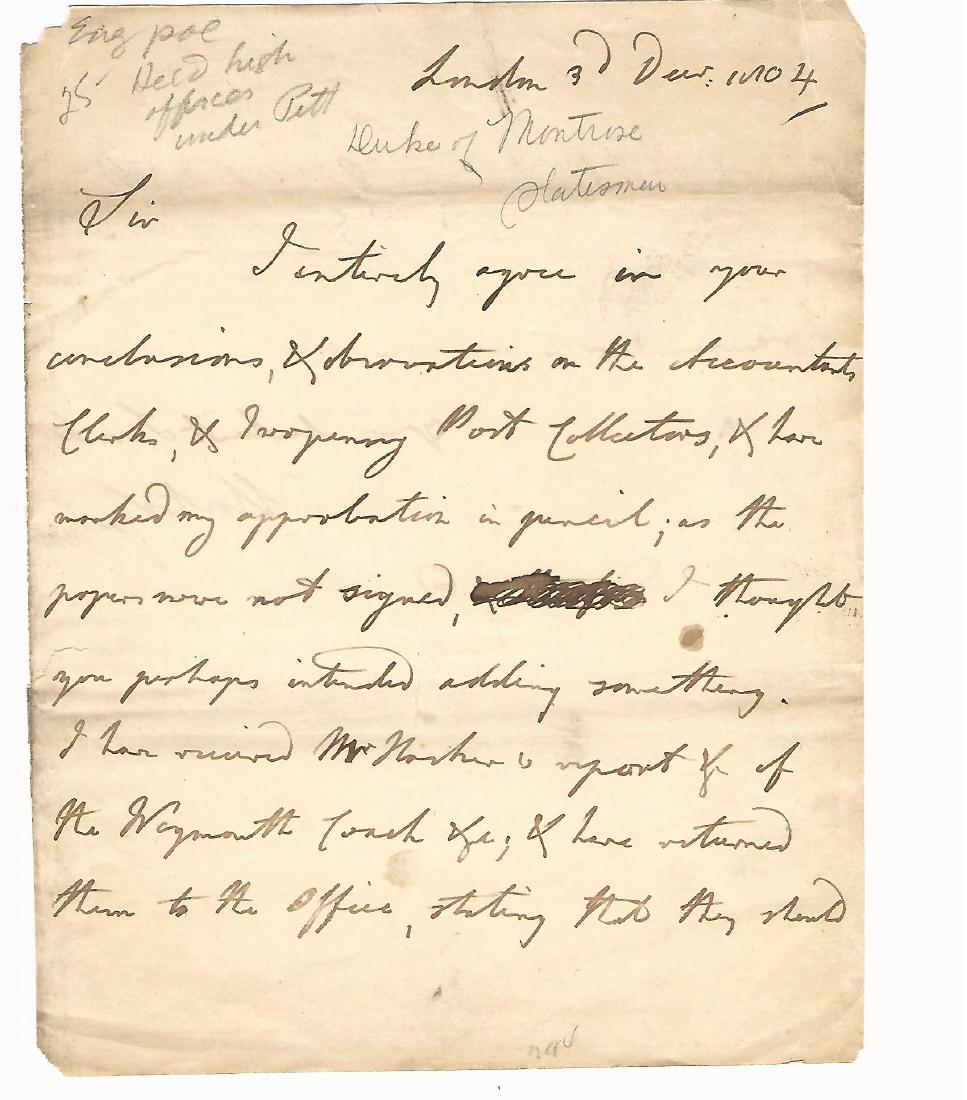 Eng pol
25 Held high
offices
under Pitt
London 3d Decr. 1804
Duke of Montrose
Statesman
Sir
I intirely agree in your
conclusions, & observations on the Accountants
Clerks, & Twopenny Post Collectors, & have
marked my approbation in pencil; as the
papers were not signed, I thought
you perhaps intended adding something.
I have received Mr report & of
the Weymouth Coach &c; & have returned
them to the Office, stating that they should